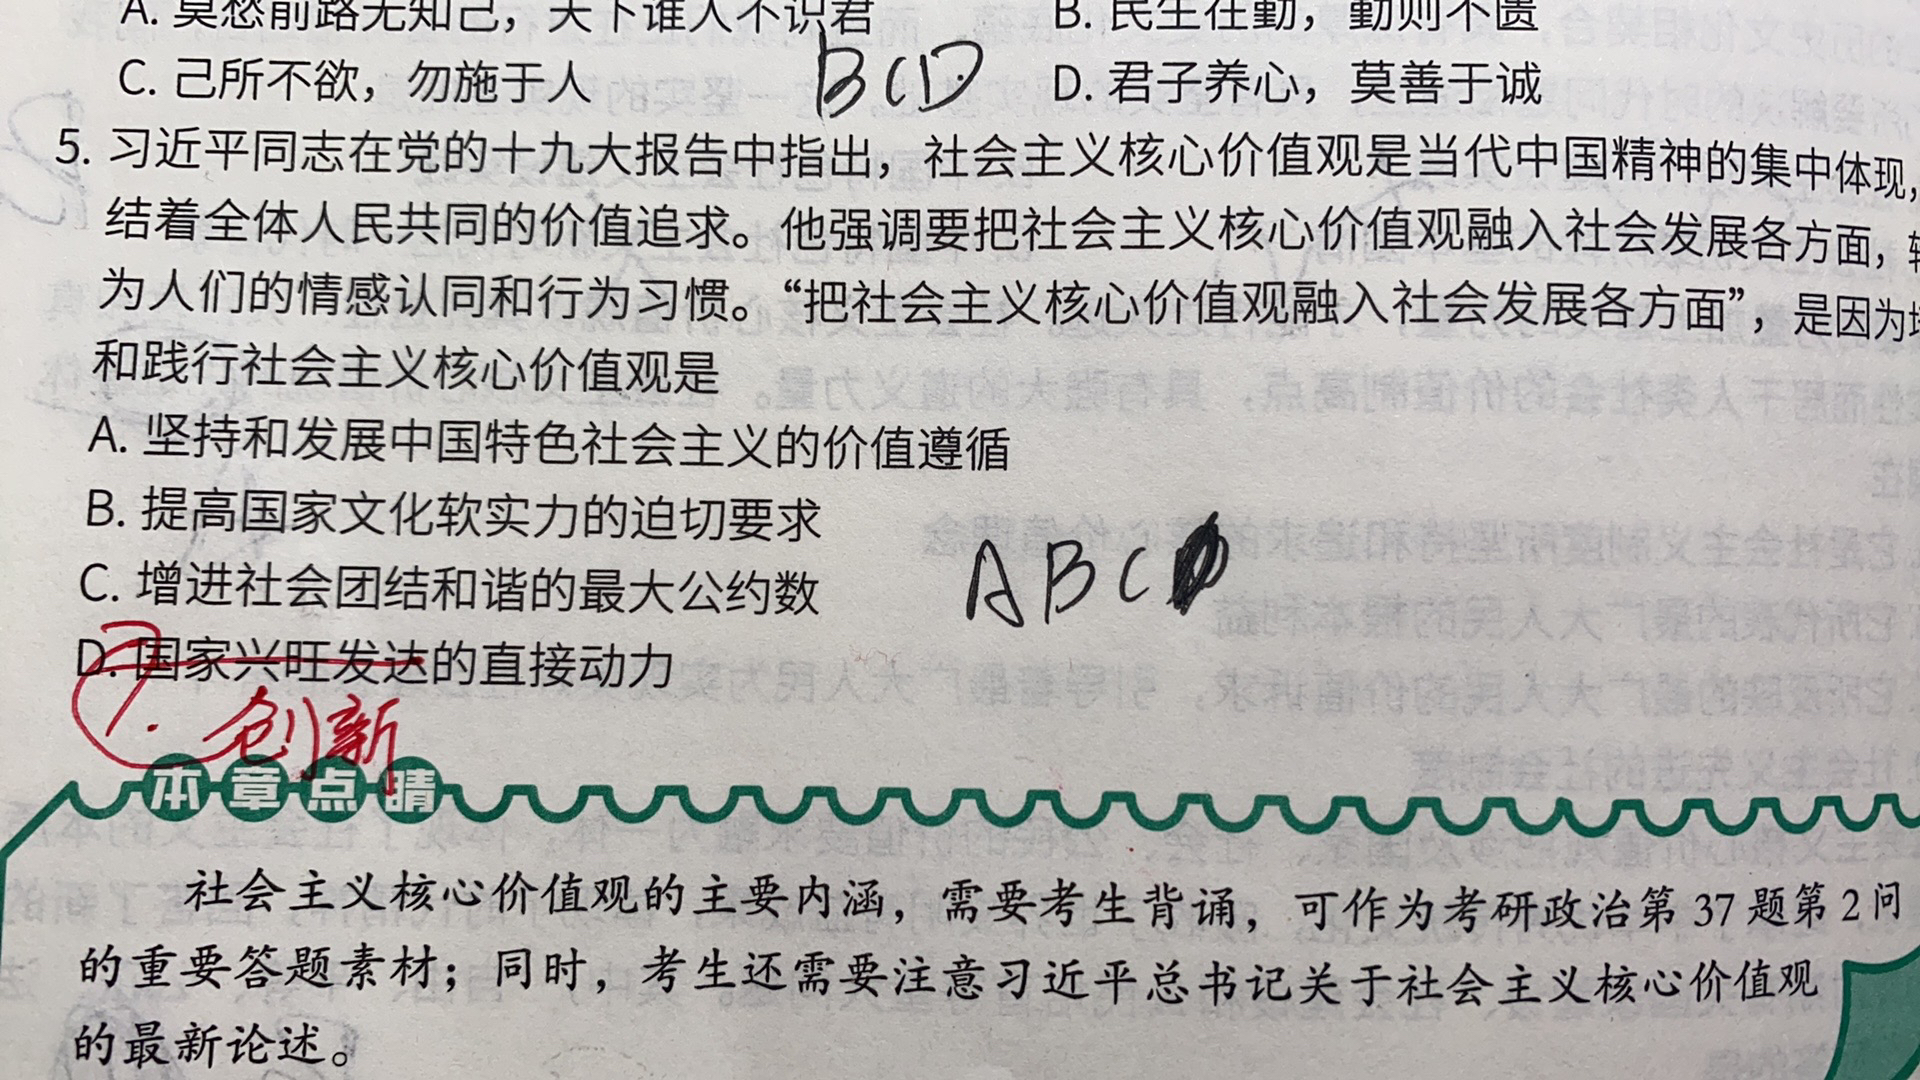 A. 莫愁前路无知己，天下谁人不识君
B. 民生在勤，勤则不匮
C. 己所不欲，勿施于人
BCD
D. 君子养心，莫善于诚
5. 习近平同志在党的十九大报告中指出，社会主义核心价值观是当代中国精神的集中体现，
结着全体人民共同的价值追求。他强调要把社会主义核心价值观融入社会发展各方面，转
为人们的情感认同和行为习惯。“把社会主义核心价值观融入社会发展各方面”，是因为
和践行社会主义核心价值观是
A. 坚持和发展中国特色社会主义的价值遵循
B. 提高国家文化软实力的迫切要求
C. 增进社会团结和谐的最大公约数
ABC
D. 国家兴旺发达的直接动力
创新
本章点睛
社会主义核心价值观的主要内涵，需要考生背诵，可作为考研政治第 37 题第 2 问
的重要答题素材；同时，考生还需要注意习近平总书记关于社会主义核心价值观
的最新论述。